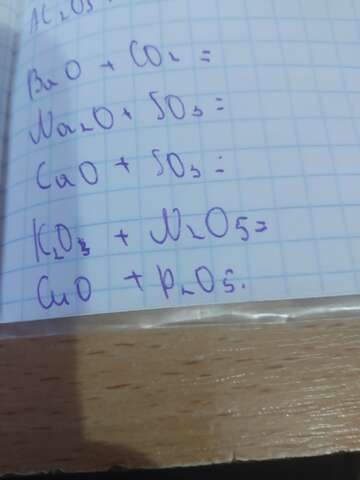 Al2O3
BaO + CO2 =
Na2O + SO3 =
CaO + SO3 =
K2O3 + N2O5 =
CuO + P2O5.